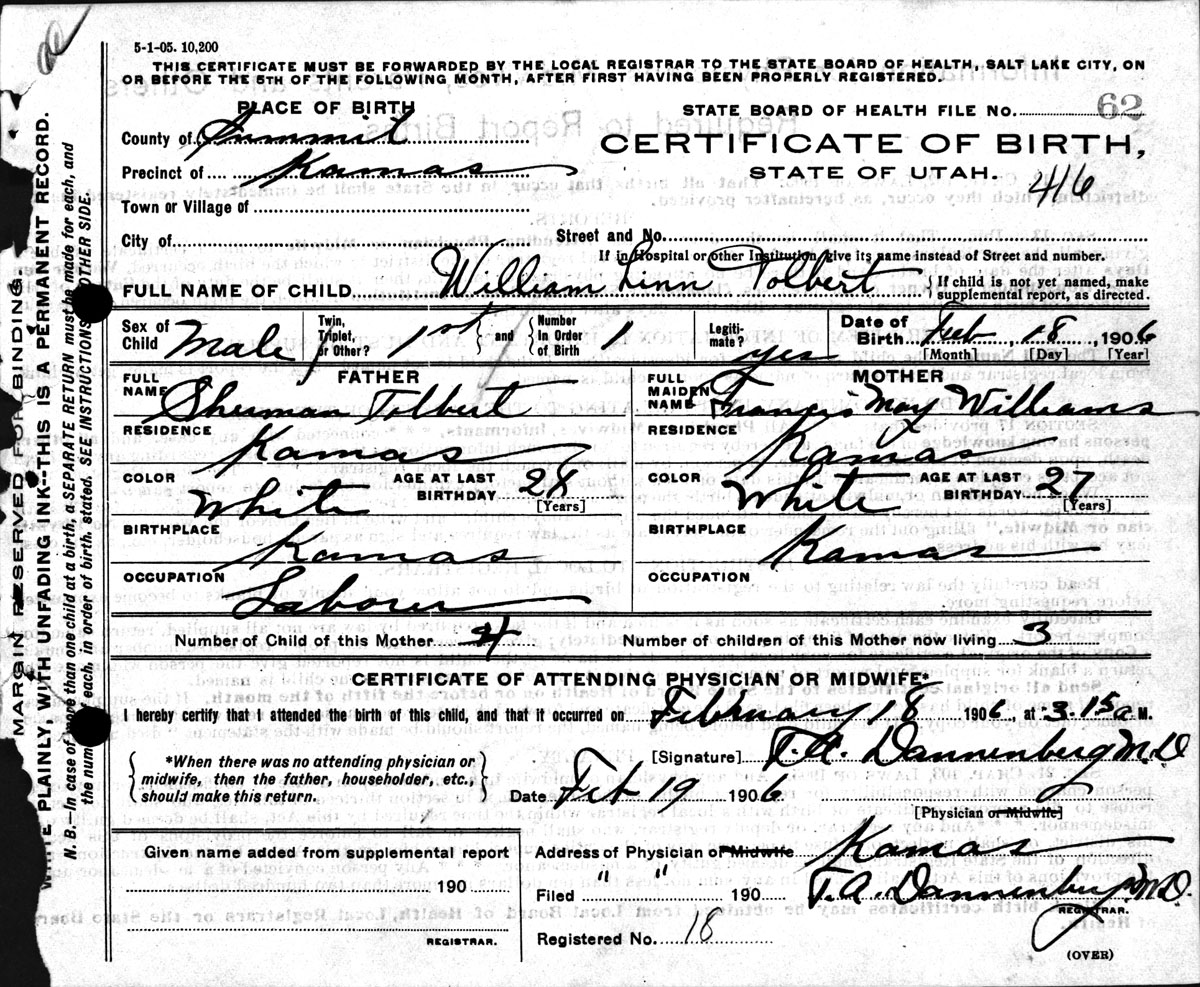 5-1-05. 10,200
THIS CERTIFICATE MUST BE FORWARDED BY THE LOCAL REGISTRAR TO THE STATE BOARD OF HEALTH, SALT LAKE CITY, ON
OR BEFORE THE 5TH OF THE FOLLOWING MONTH, AFTER FIRST HAVING BEEN PROPERLY REGISTERED.
PLACE OF BIRTH
STATE BOARD OF HEALTH FILE No. 62
County of Summit
CERTIFICATE OF BIRTH,
Precinct of Kamas
STATE OF UTAH.
416
Town or Village of
City of Street and No.
If in Hospital or other Institution, give its name instead of Street and number.
FULL NAME OF CHILD William Linn Tolbert {If child is not yet named, make supplemental report, as directed.
Sex of Child Male Twin, Triplet, or Other? 1st and Number In Order of Birth 1 Legitimate? yes Date of Birth Feb 18 1906
[Month] [Day] [Year]
FATHER
FULL NAME Sherman Tolbert
RESIDENCE Kamas
COLOR White AGE AT LAST BIRTHDAY 28
[Years]
BIRTHPLACE Kamas
OCCUPATION Laborer
MOTHER
FULL MAIDEN NAME Francis May Williams
RESIDENCE Kamas
COLOR White AGE AT LAST BIRTHDAY 27
[Years]
BIRTHPLACE Kamas
OCCUPATION
Number of Child of this Mother 4 Number of children of this Mother now living 3
CERTIFICATE OF ATTENDING PHYSICIAN OR MIDWIFE*
I hereby certify that I attended the birth of this child, and that it occurred on February 18 1906, at 3.15 a M.
{*When there was no attending physician or midwife, then the father, householder, etc., should make this return.}
[Signature] T. A. Dannenberg M.D
Date Feb 19 1906
[Physician or Midwife]
Given name added from supplemental report
190
REGISTRAR.
Address of Physician or Midwife Kamas
" "
Filed 190 T. A. Dannenberg M.D.
REGISTRAR.
Registered No. 18
(OVER)
MARGIN RESERVED FOR BINDING.
PLAINLY, WITH UNFADING INK--THIS IS A PERMANENT RECORD.
N. B. In case of more than one child at a birth, a SEPARATE RETURN must be made for each, and
the number of each, in order of birth, stated. SEE INSTRUCTIONS OTHER SIDE.